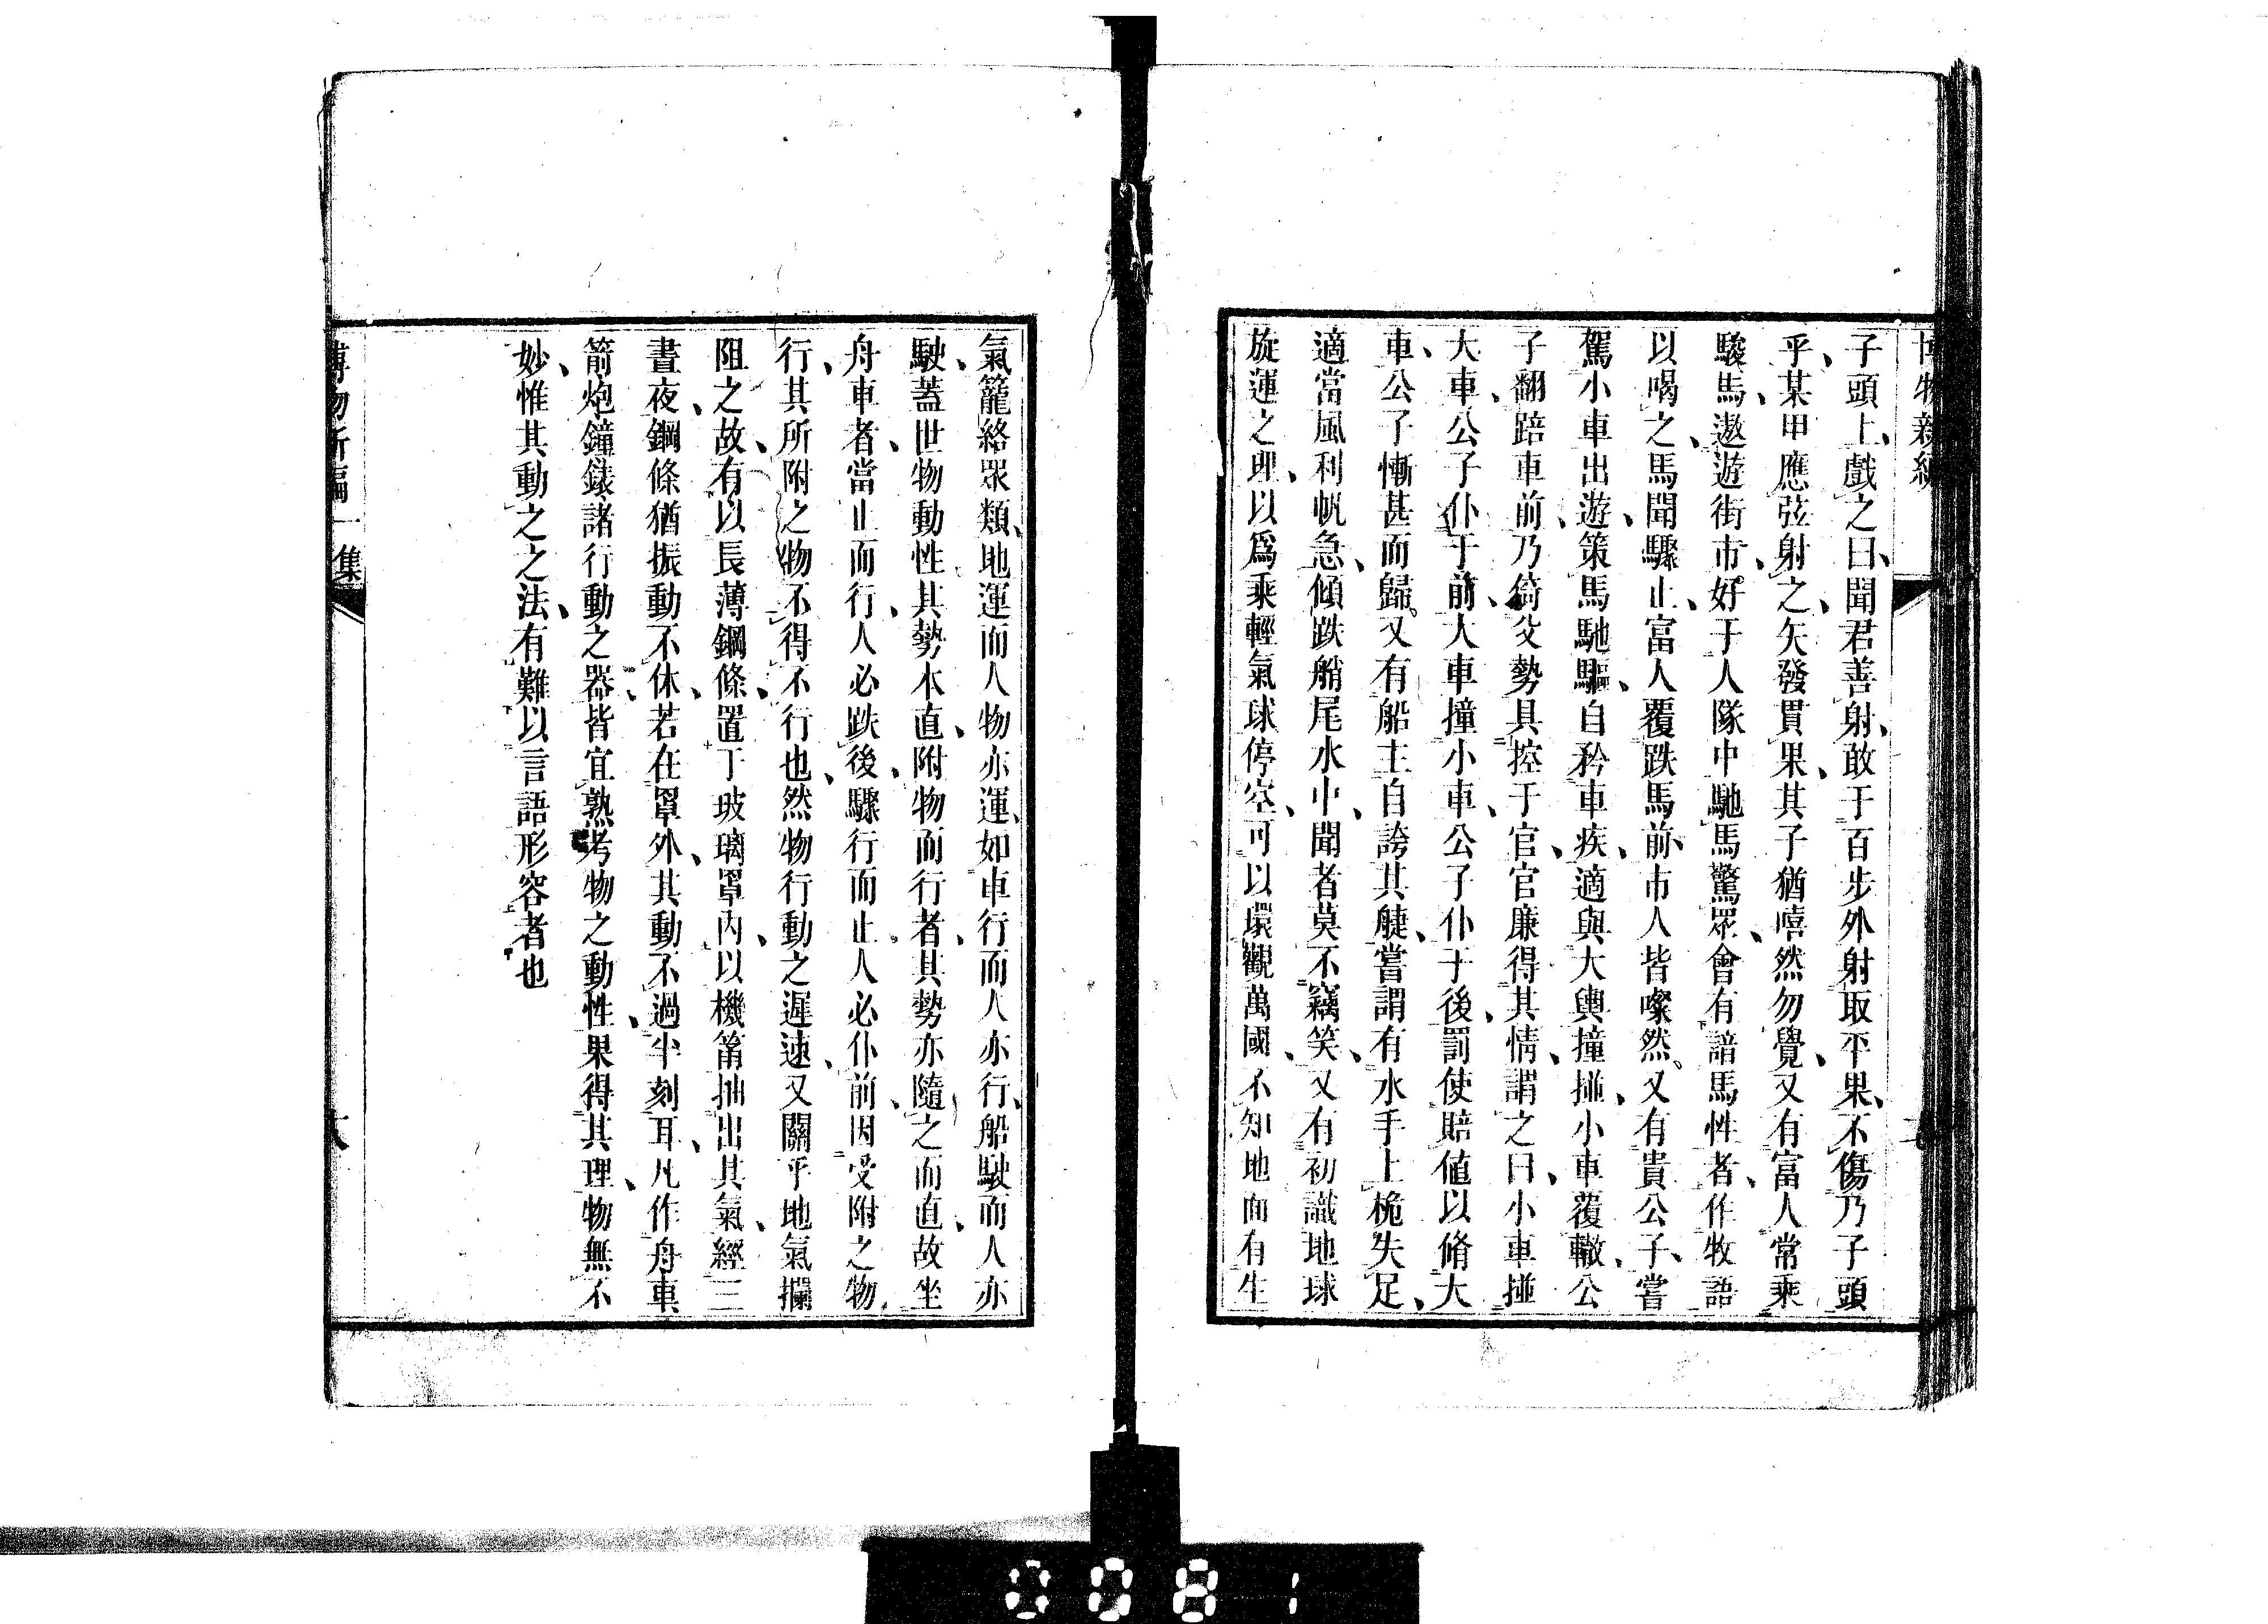 博物新編
子頭上、戲之曰、聞君善射、敢于百步外射取苹果、不傷乃子頭
乎、某甲應弦射之、矢發貫果、其子猶嘻然勿覺、又有富人常乘
駿馬、遨遊街市、好于人隊中馳馬驚眾、會有諳馬性者、作牧語
以喝之、馬聞驟止、富人覆跌馬前、市人皆噪然。又有貴公子、嘗
駕小車出遊、策馬馳驅、自矜車疾、適與大輿撞碰、小車覆轍、公
子翻踣車前、乃倚父勢具控于官、官廉得其情、謂之曰、小車碰
大車、公子仆于前、大車撞小車、公子仆于後、罰使賠値以脩大
車、公子慚甚而歸。又有船主自誇其艍、嘗謂有水手上桅失足、
適當風利帆急、傾跌艄尾水中、聞者莫不竊笑、又有初識地球
旋運之理、以爲乘輕氣球停空、可以環觀萬國、不知地面有生
氣籠絡眾類、地運而人物亦運、如車行而人亦行、船駛而人亦
駛、蓋世物動性、其勢本直、附物而行者、其勢亦隨之而直、故坐
舟車者、當止而行、人必跌後、驟行而止、人必仆前、因受附之物
行、其所附之物不得不行也、然物行動之遲速、又關乎地氣攔
阻之故、有以長薄鋼條、置于玻璃罩內、以機筩抽出其氣、經三
晝夜、鋼條猶振動不休、若在罩外、其動不過半刻耳、凡作舟車
箭炮鐘錶諸行動之器、皆宜熟考物之動性、果得其理、物無不
妙、惟其動之之法、有難以言語形容者也
博物新編一集
0081